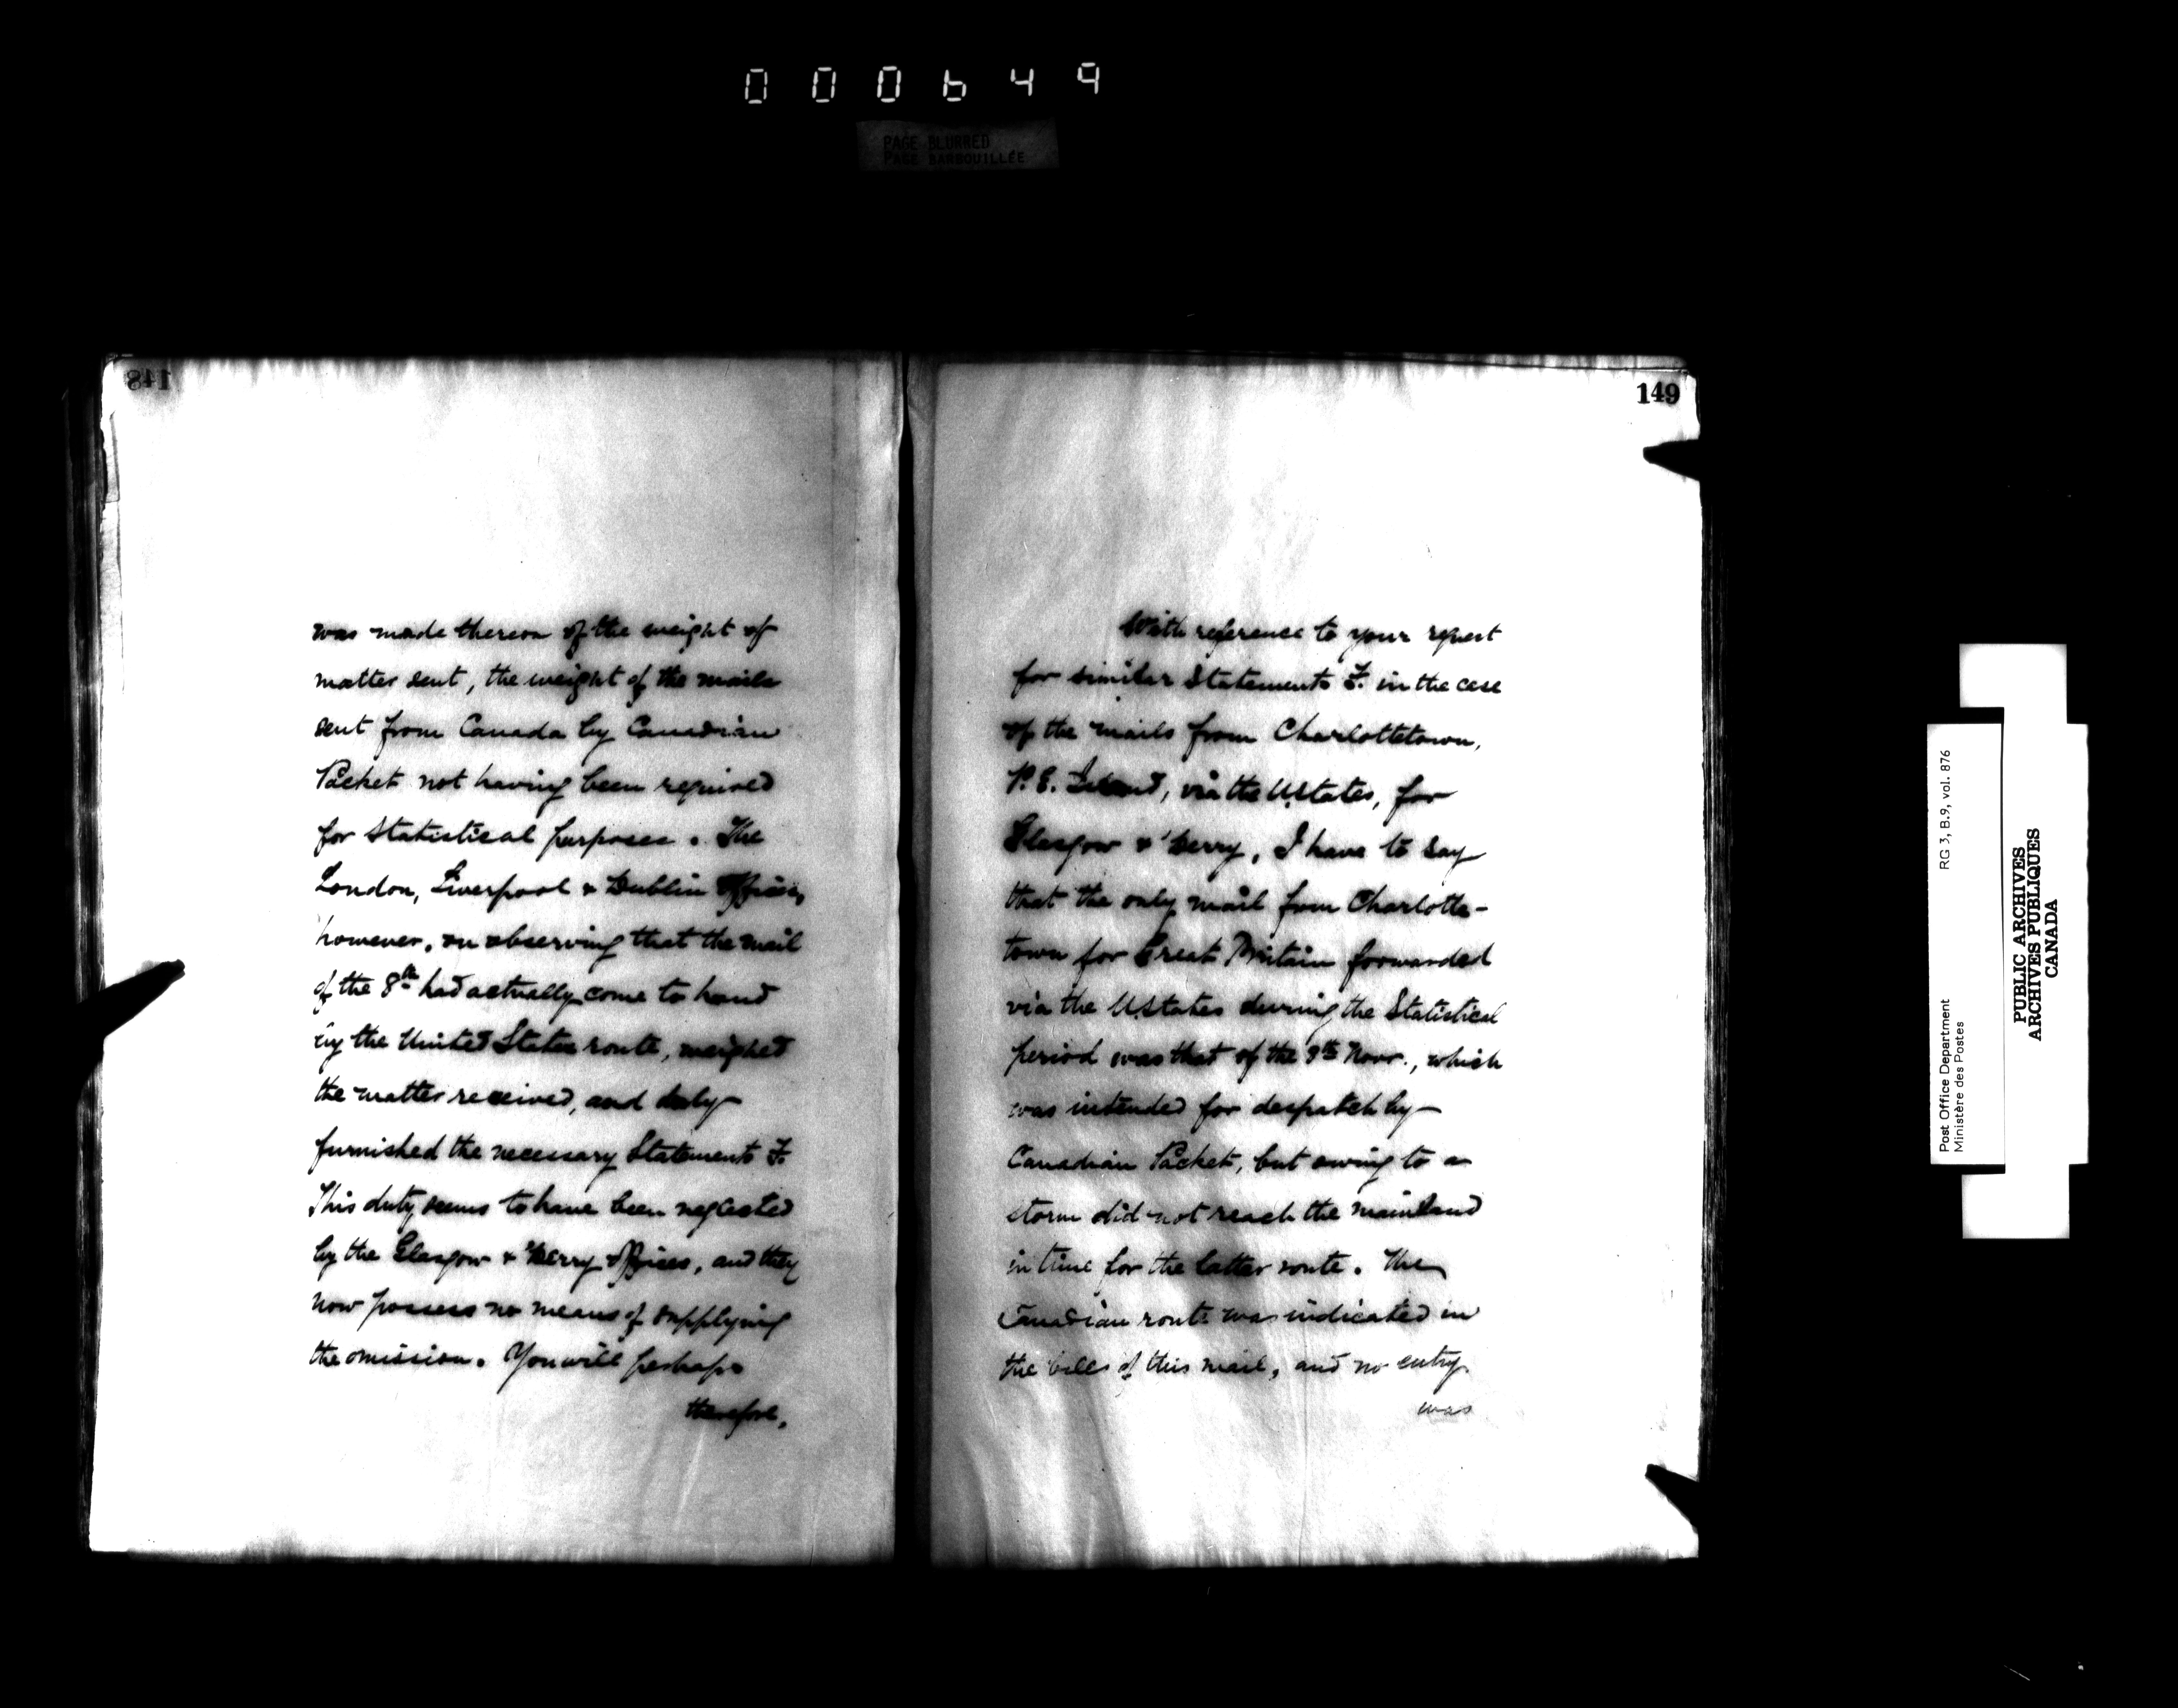 000649
PAGE BLURRED
PAGE BARBOUILLÉE
148
was made thereon of the weight of
matter sent, the weight of the mails
sent from Canada by Canadian
Packet not having been required
for statistical purposes. The
London, Liverpool & Dublin Offices,
however, on observing that the mail
of the 8th had actually come to hand
by the United States route, weighed
the matter received, and duly
furnished the necessary Statements F.
This duty seems to have been neglected
by the Glasgow & 'Derry offices, and they
now possess no means of supplying
the omission. You will perhaps
therefore,
149
With reference to your request
for similar Statements F. in the case
of the mails from Charlottetown,
P.E. Island, via the U.States, for
Glasgow & 'Derry, I have to say
that the only mail from Charlotte-
town for Great Britain forwarded
via the U.States during the Statistical
period was that of the Novr., which
was intended for despatch by
Canadian Packet, but owing to a
storm did not reach the mainland
in time for the latter route. The
Canadian route was indicated in
the bills of this mail, and no entry
was
Post Office Department
Ministère des Postes
RG 3, B.9, vol. 876
PUBLIC ARCHIVES
ARCHIVES PUBLIQUES
CANADA